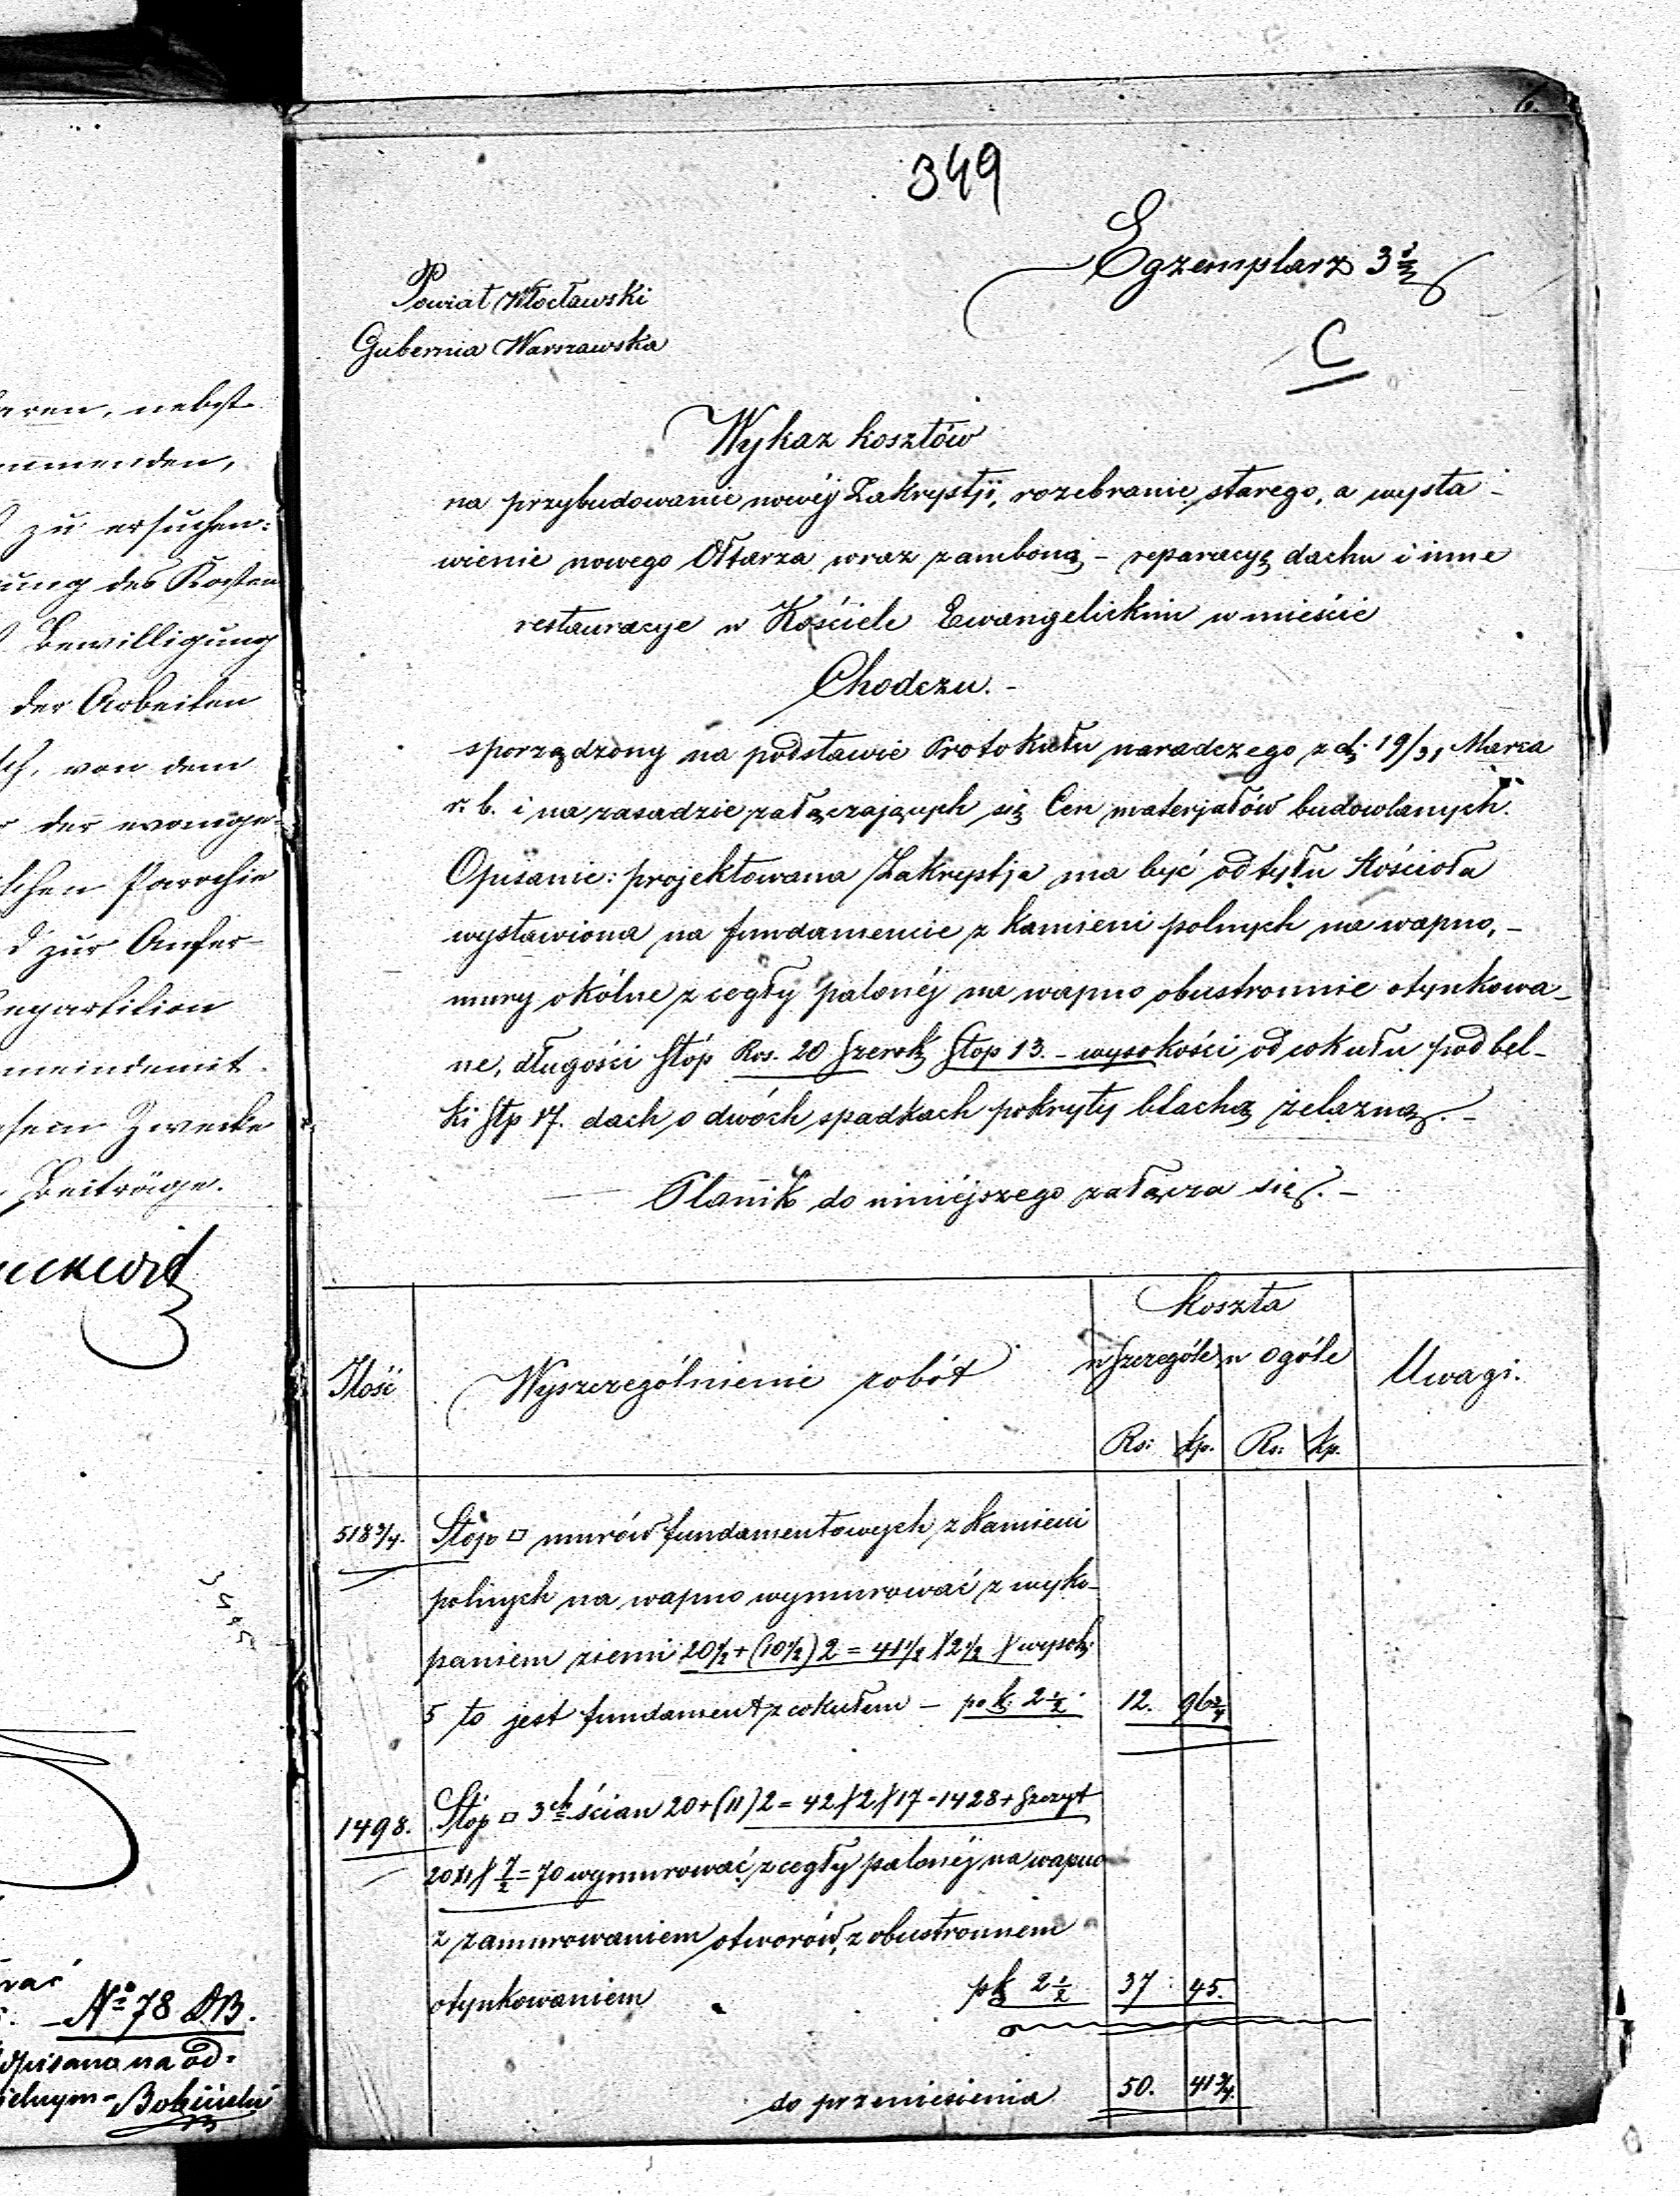 6.
349
Egzemplarz 3ci
C
Powiat Włocławski
Gubernia Warszawska
Wykaz kosztów
na przybudowanie nowéj Zakrystji, rozebranie starego, a wysta-
wienie nowego Ołtarza wraz z amboną - reparacyę dachu i inne
restauracye w Kościele Ewangelickim w mieście
Chodczu. -
sporządzony na podstawie Protokułu naradczego z d. 19/31 Marca
r. b. i na zasadzie załączających się Cen materjałów budowlanych.
Opisanie: projektowana Zakrystja ma być od tyłu Kościoła
wystawiona na fundamencie z kamieni polnych na wapno, -
mury okólne z cegły palonéj na wapno obustronnie otynkowa-
ne, długości stóp Ros. 20 szerok. stop 13. - wysokości od cokułu pod bel-
ki stp 17. dach o dwóch spadkach pokryty blachą żelazną. -
Planik do niniéjszego załącza się. -
Ilość
Wyszczególnienie robót
Koszta
w szczególe
w ogóle
Uwagi.
Rs: kp. Rs: kp.
518 3/4. Stóp □ murów fundamentowych z kamieni
polnych na wapno wymurować z wyko-
paniem ziemi 20 1/2 + (10 1/2) 2 = 41 1/2 X 2 1/2 X wysok.
5 to jest fundament z cokułem - po k. 2 1/2. 12. 96 3/4
1498. Stóp □ 3ch ścian 20 + (11) 2 = 42 X 2 X 17 = 1428 + szczyt
20 X 1 X 7/2 = 70 wymurować z cegły palonéj na wapno
z zamurowaniem otworów, z obustronnem
otynkowaniem pk 2 1/2 37. 45.
do przeniesienia 50. 41 3/4.
nebst
zu ersuchen:
des Kosten
Bewilligung
der Arbeiten
von dem
der
Parochie
zur Anfer-
Zwecke
Beiträge.
No 78 DB.
na od-